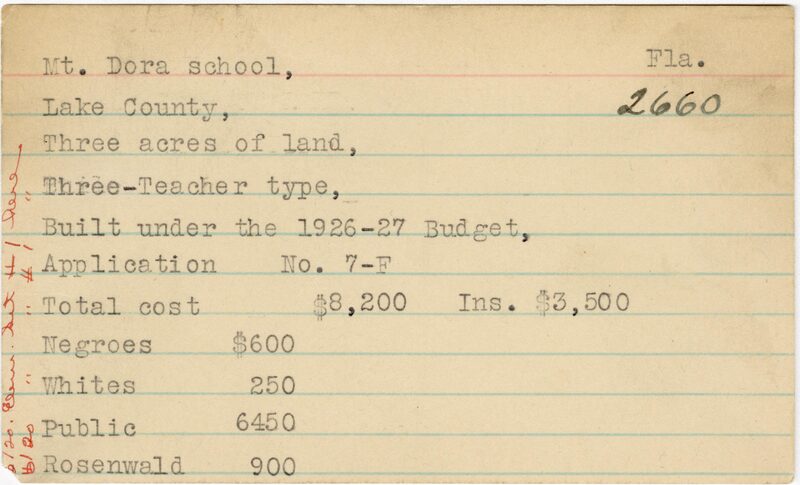 Mt. Dora school, Fla.
Lake County, 2660
Three acres of land,
Three-Teacher type,
Built under the 1926-27 Budget,
Application No. 7-F
Total cost $8,200 Ins. $3,500
Negroes $600
Whites 250
Public 6450
Rosenwald 900